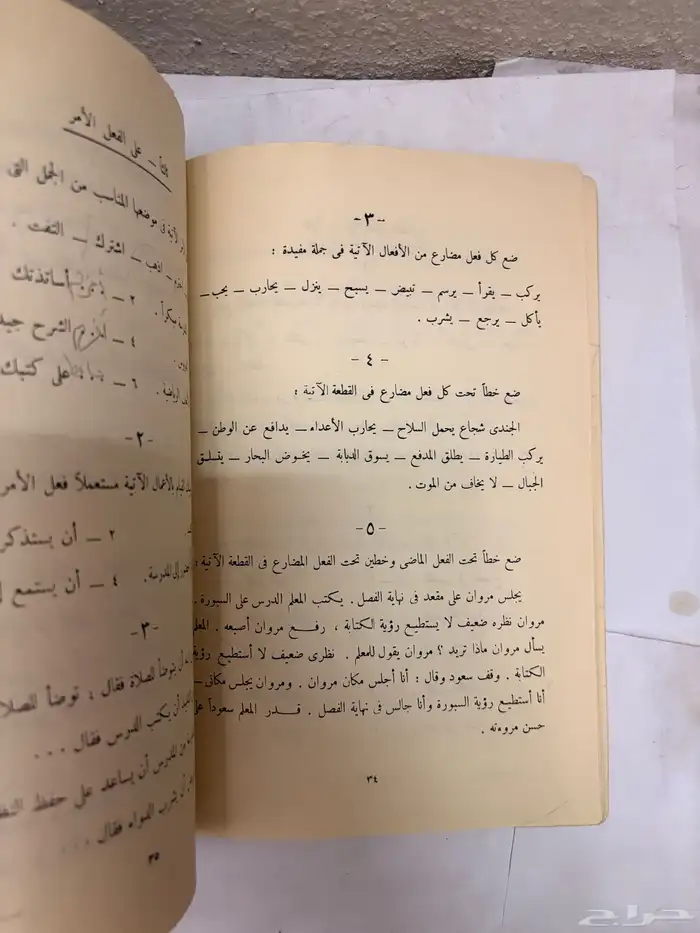 -٣-
ضع كل فعل مضارع من الأفعال الآتية فى جملة مفيدة :
يركب ــ يقرأ ــ يرسم ــ تبيض ــ يسبح ــ ينزل ــ يحارب ــ يجب ــ
يأكل ــ يرجع ــ يشرب .
-٤-
ضع خطاً تحت كل فعل مضارع فى القطعة الآتية :
الجندى شجاع يحمل السلاح ــ يحارب الأعداء ــ يدافع عن الوطن ــ
يركب الطيارة ــ يطلق المدفع ــ يسوق الدبابة ــ يخوض البحار ــ يتسلق
الجبال ــ لا يخاف من الموت .
-٥-
ضع خطاً تحت الفعل الماضى وخطين تحت الفعل المضارع فى القطعة الآتية
يجلس مروان على مقعد فى نهاية الفصل . يكتب المعلم الدرس على السبورة .
مروان نظره ضعيف لا يستطيع رؤية الكتابة ، رفع مروان أصبعه . المعلم
يسأل مروان ماذا تريد ؟ مروان يقول للمعلم . نظرى ضعيف لا أستطيع رؤية
الكتابة . وقف سعود وقال : أنا أجلس مكان مروان . ومروان يجلس مكانى ــ
أنا أستطيع رؤية السبورة وأنا جالس فى نهاية الفصل . قدر المعلم سعوداً على
حسن مروءته .
٣٤
ــ على الفعل الأمر
فى موضعها المناسب من الجمل التى
اذهب ــ اشترك ــ التفت .
٢ ــ أساتذتك
مبكراً .
٤ ــ الشرح
٦ ــ على كتبك
الرياضية .
-٢-
بالأعمال الآتية مستعملاً فعل الأمر
٢ ــ أن يستذكر
إلى المدرسة .
٤ ــ أن يستمع
-٣-
أن يتوضأ للصلاة فقال ، توضأ للصلا
أن يكتب الدرس فقال ...
أن يساعد على حفظ
أن يشرب الدواء فقال ...
٣٥
حراج